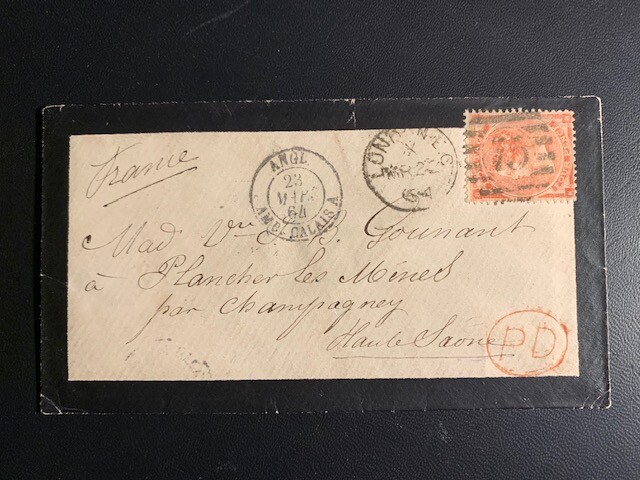 France
ANGL.
23
MARS
64
AMB. CALAIS A
LONDON-E.C
MR 22
64
Mad Vve J. B. Gounant
à Plancher les Mines
par Champagney
Haute Saône
PD